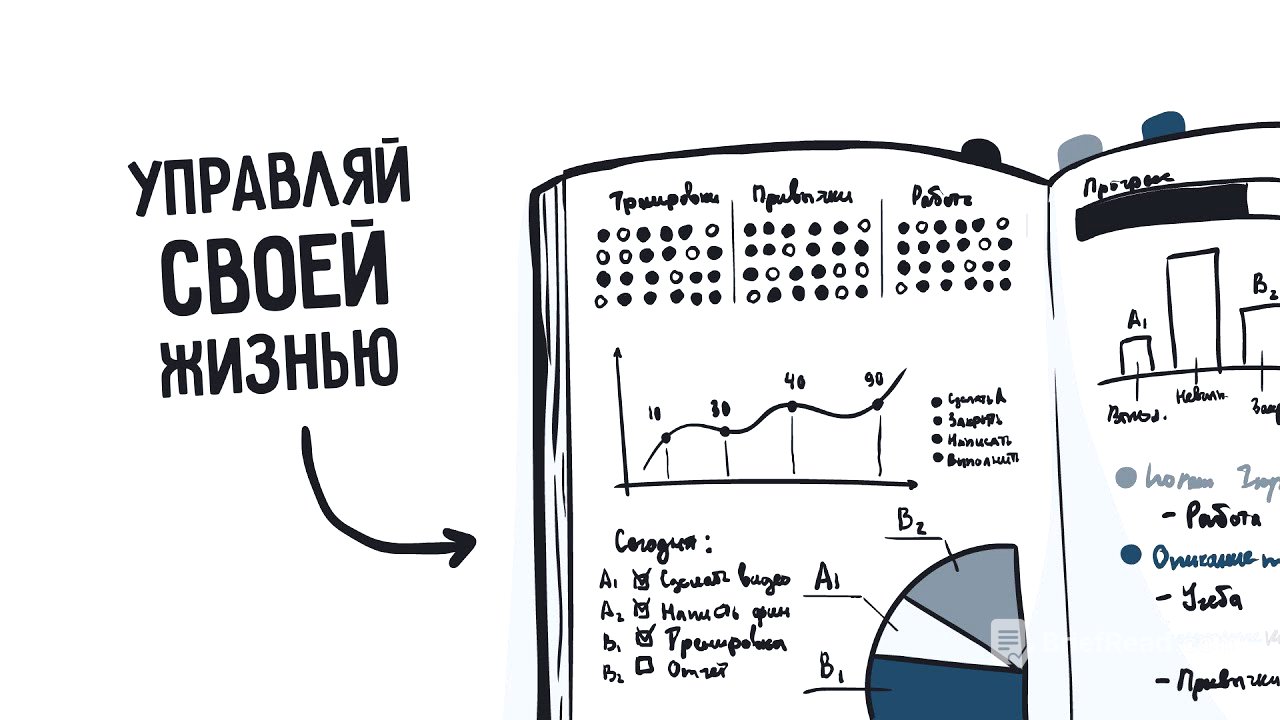 УПРАВЛЯЙ
СВОЕЙ
ЖИЗНЬЮ
Тренировки
Привычки
Работа
10
30
40
90
Сделать А
Закрыть
Написать
Выполнить
Сегодня:
A1 Сделать видео
A2 Написать фин
B1 Тренировка
B2 Отчет
B2
A1
B1
Прогресс
A1
B2
Выпол.
- Работа
- Учеба
- Привычки
BriefRead